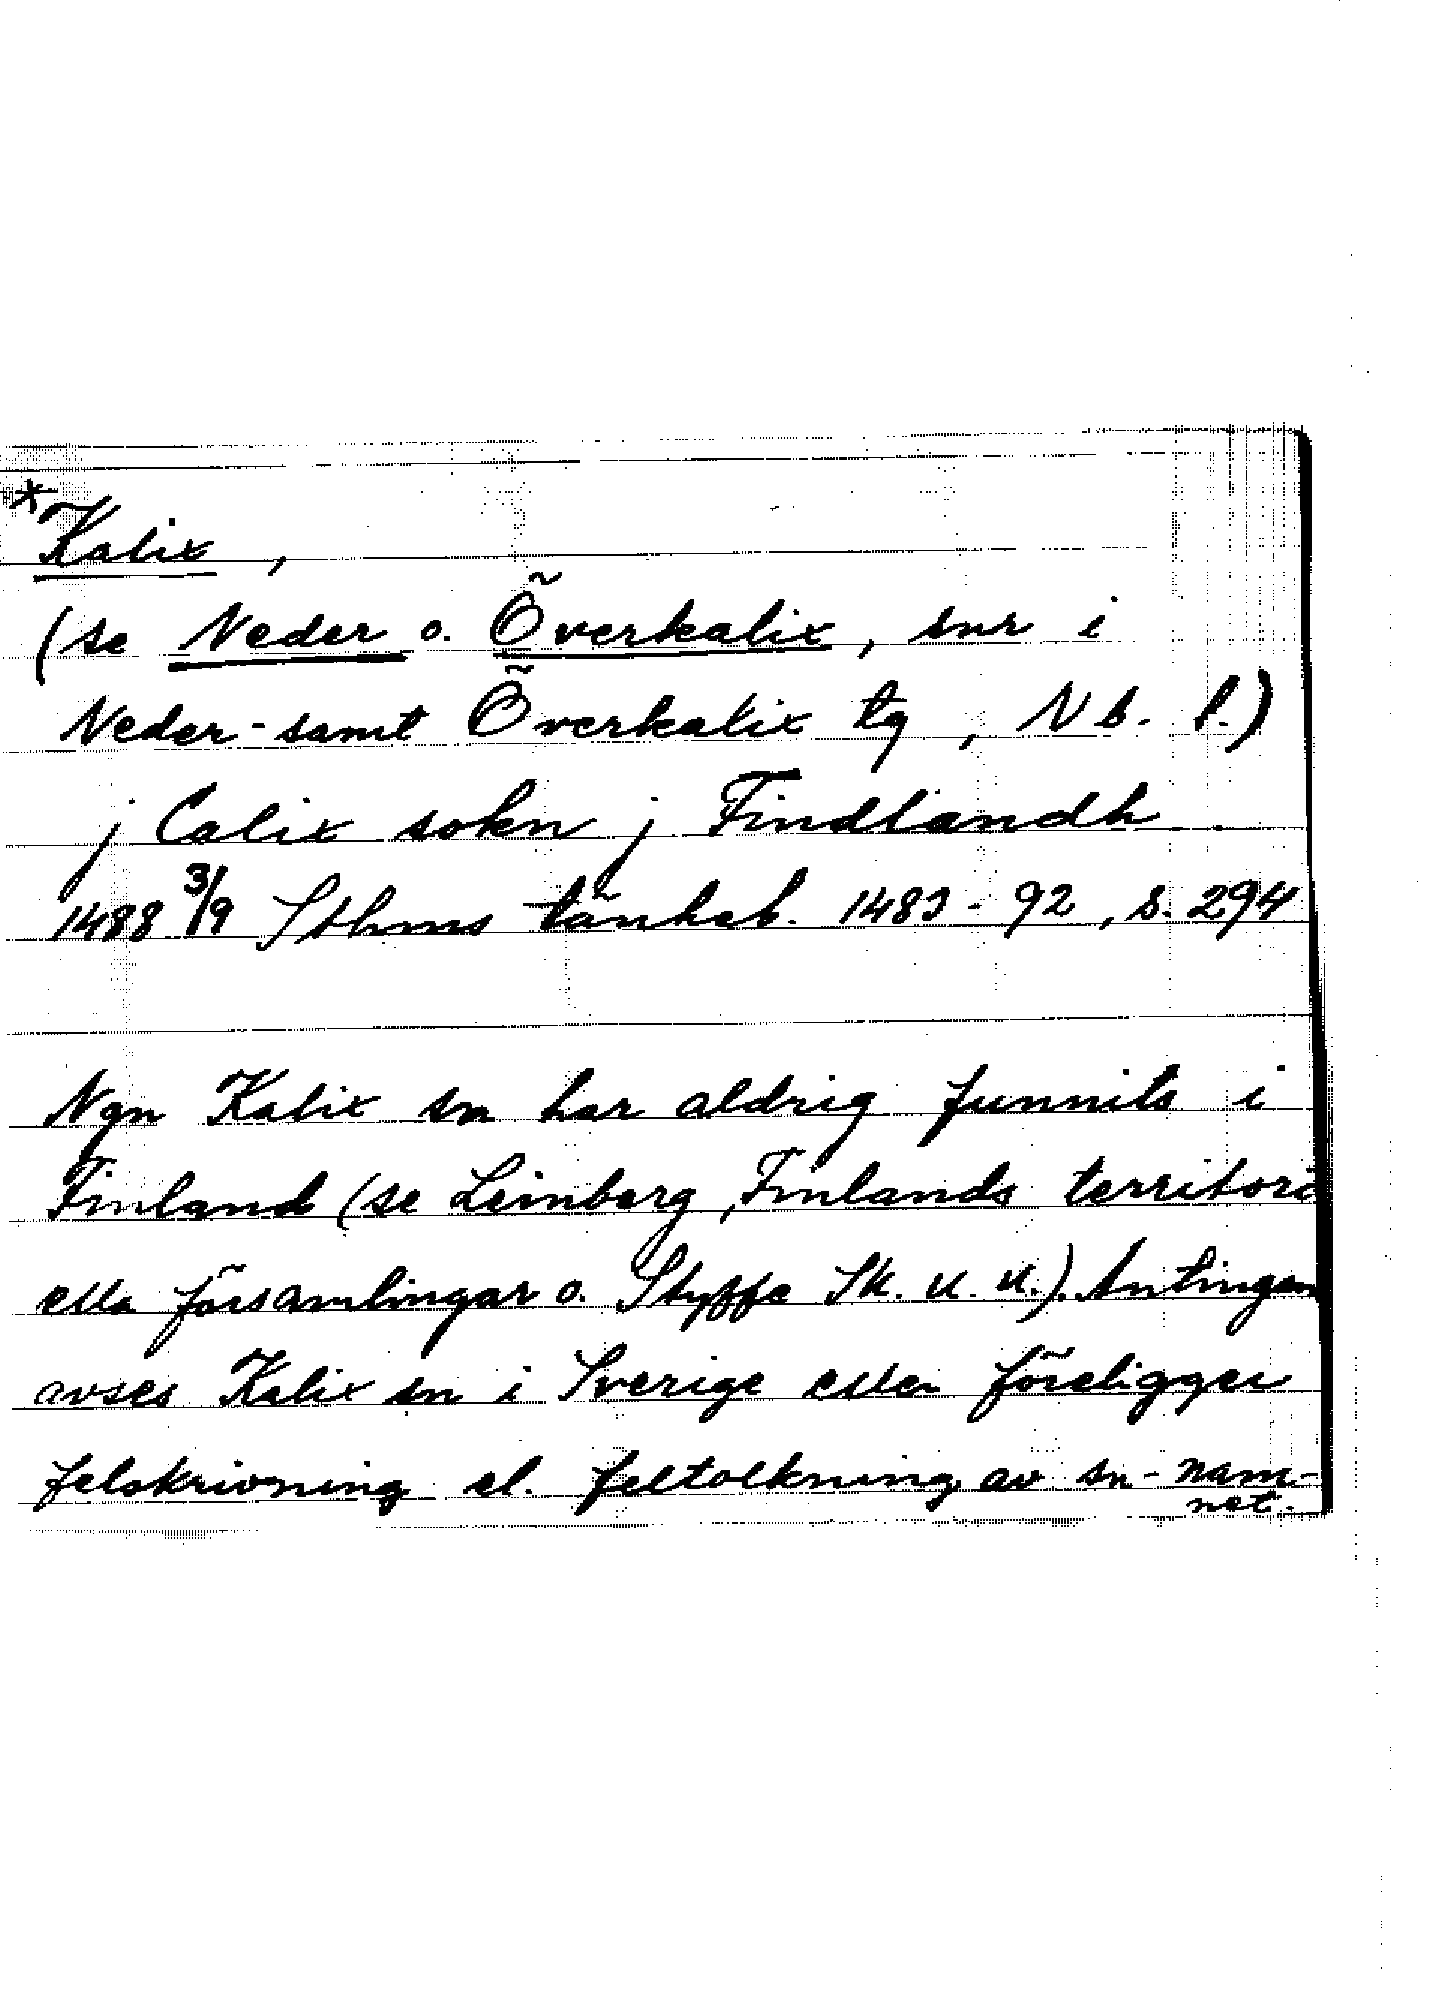 *Kalix,
(se Neder o. Överkalix, snr i
Neder- samt Överkalix tg, Nb. l.)
j Calix sokn j Findlandh
1488 3/9 Sthms tänkeb. 1483-92, s. 294
Ngn Kalix sn har aldrig funnits i
Finland (se Leinberg, Finlands territori
ella församlingar o. Styffe Sk. u. u.). Antingen
avses Kalix sn i Sverige eller föreligger
felskrivning el. feltolkning av sn-nam-
net.